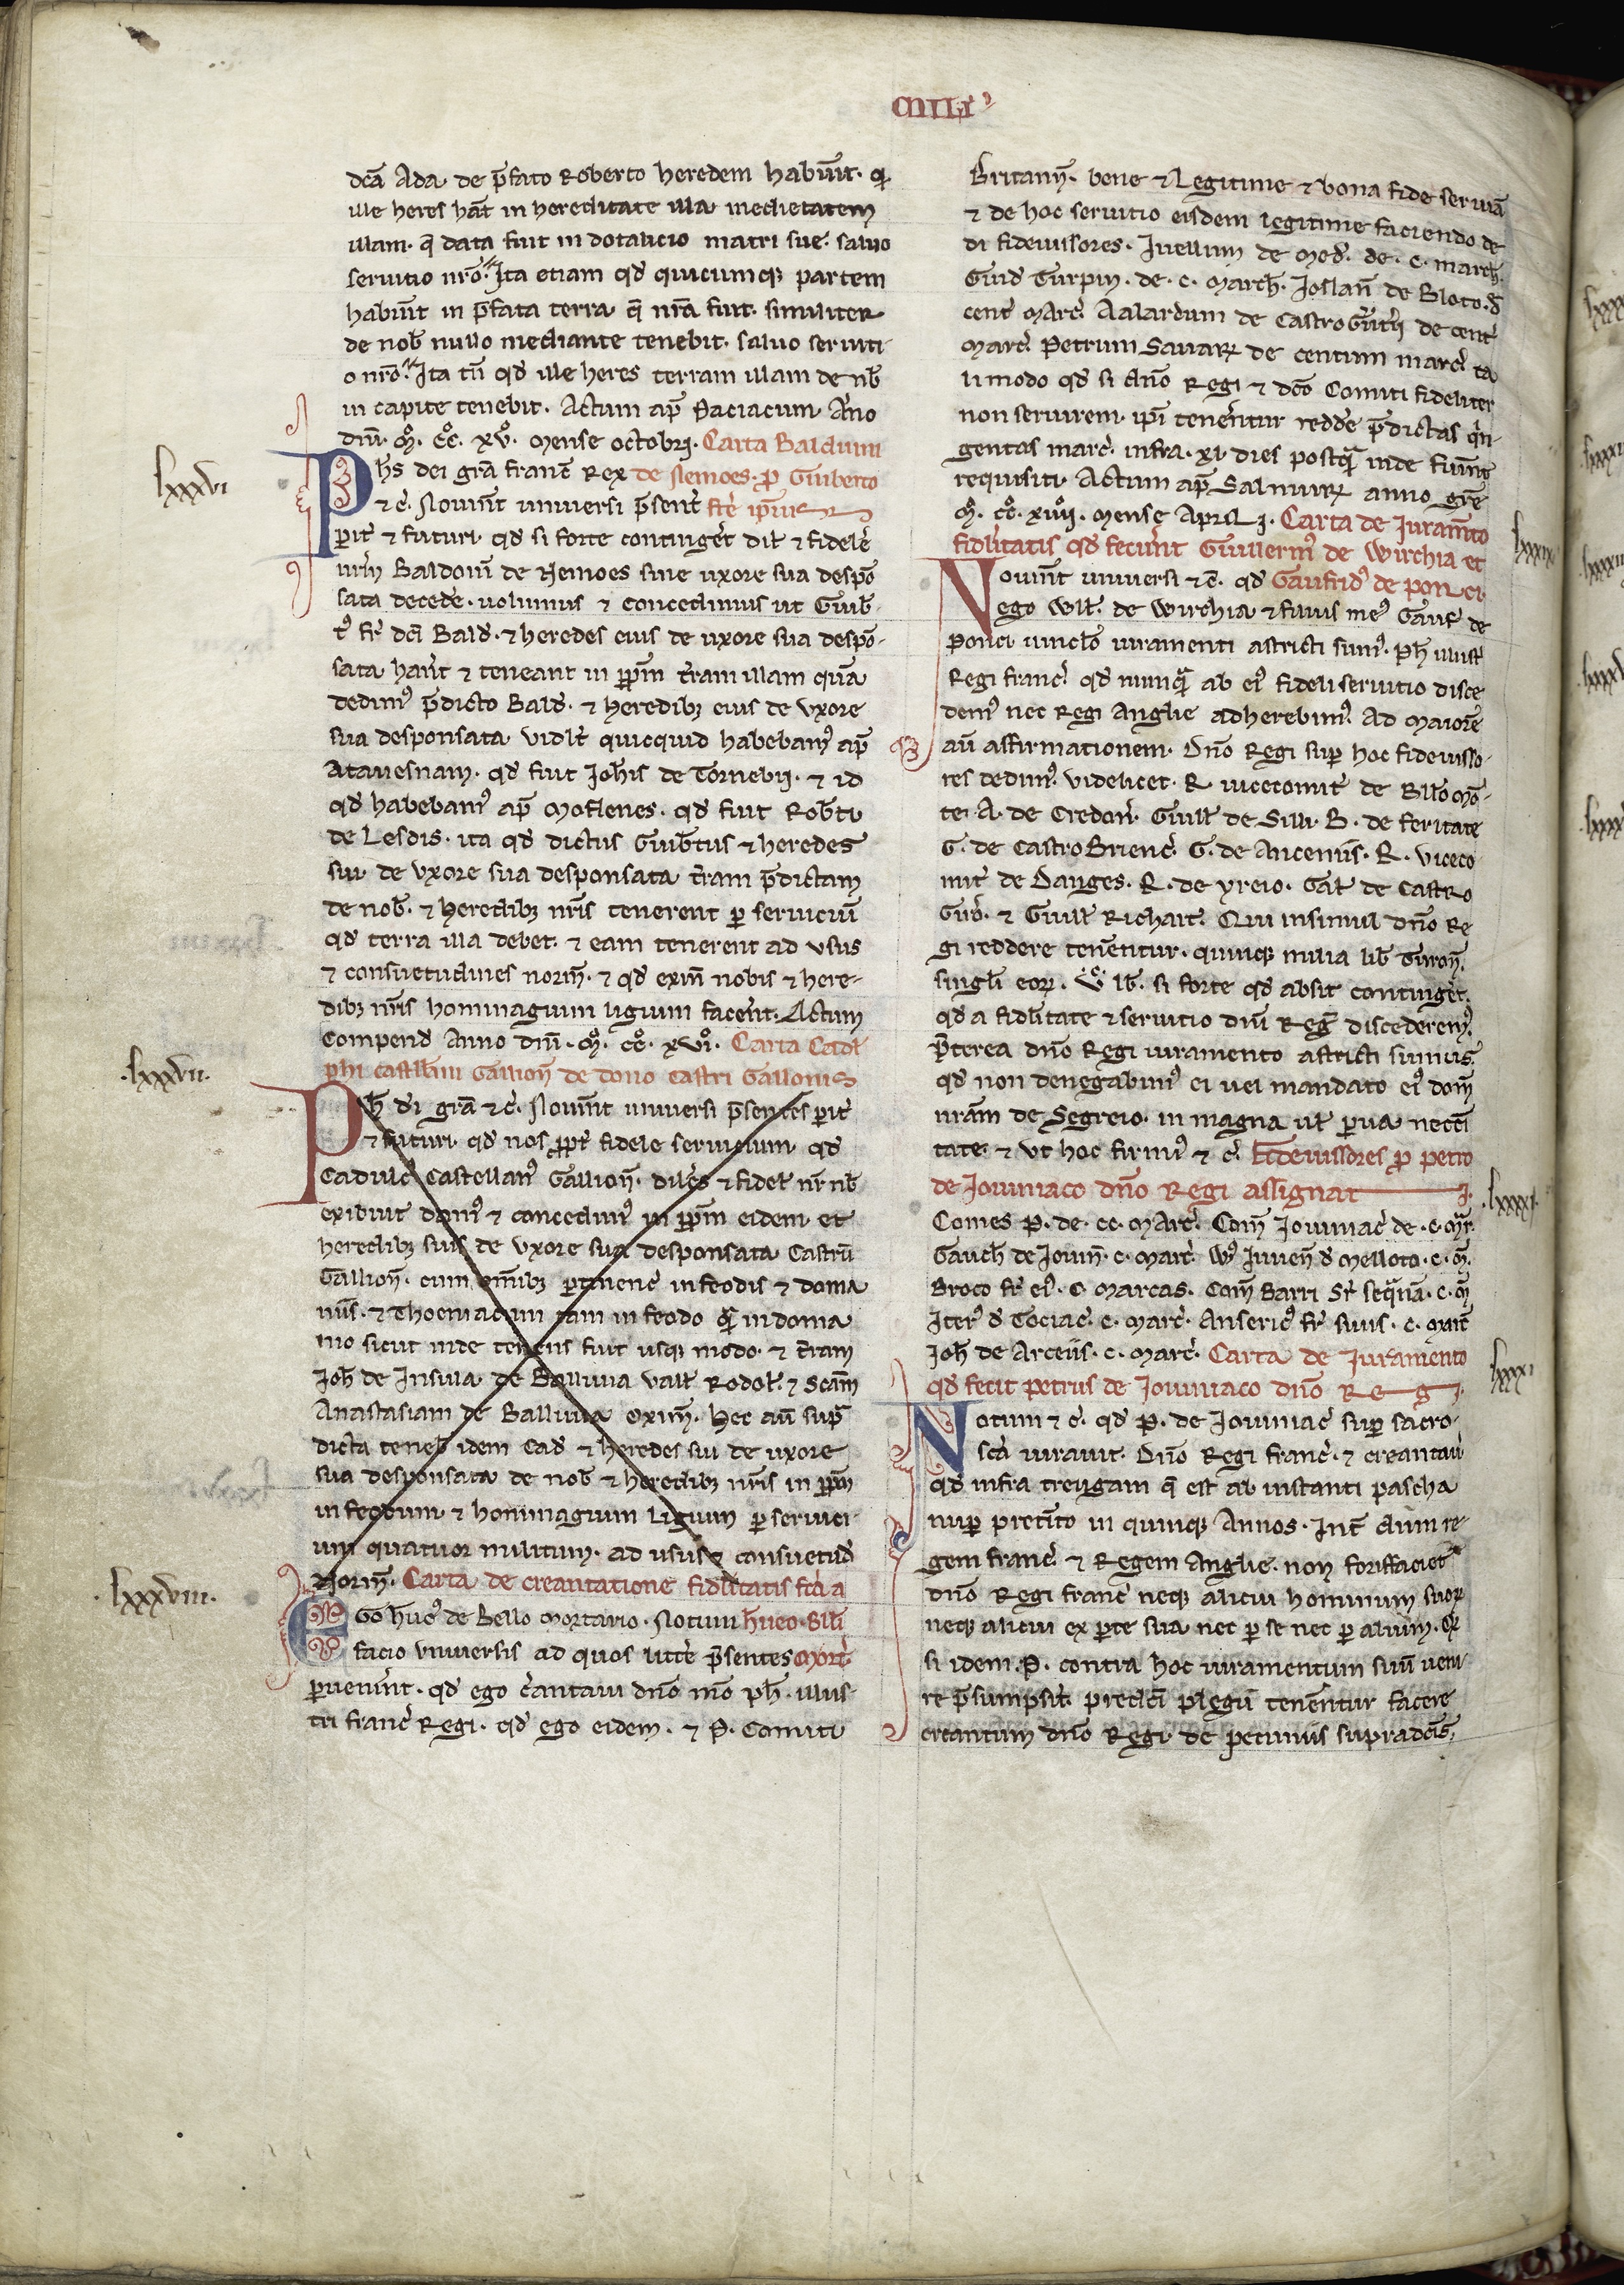 CIIII
dcā Ada de p̄fato Roberto heredem habūit. qi
ille heres hāt in hereditate illa medietatem
illam. q̄ data fuit in dotalicio matri sue. saluo
seruitio nr̄o. Ita etiam qd̄ quicumqz partem
habūit in p̄fata terra q̄ nr̄a fuit. similiter
de nob̄ nullo mediante tenebit. saluo seruiti
o nr̄o. Ita tn̄ qd̄ ille heres terram illam de nb̄
in capite tenebit. Actum ap̄ Paciacum Ān̄o
dn̄i. M̊. cc̊. xv̊. mense octobrj. Carta Balduini
Phs dei grā franc̄ Rex de Nemoes. p̄ Guiberto
⁊ c̄. Nouīnt uniuersi p̄sent̄ fr̄e ip̄ius
pit̄ ⁊ futuri. qd̄ si forte contingēt dil̄ ⁊ fidelē
nr̄m Baldoin̄ de Nemoes sine uxore sua despō
sata decedē. uolumus ⁊ concedimus ut Guib̄
t9 fr̄ dc̄i Bald̄. ⁊ heredes eius de uxore sua despō-
sata hān̄t ⁊ teneant in pp̄m t̄ram illam quā
dedim9 p̄dicto Bald̄. ⁊ heredibz eius de uxore
sua desponsata vidl̄t quicquid habebam9 ap̄
Atauesnam. qd̄ fuit Joh̄is de Tornebu. ⁊ id
qd̄ habebam9 ap̄ Moflenes. qd̄ fuit Rob̄ti
de Lesdis. ita qd̄ dictus Guib̄tus ⁊ heredes
sui de uxore sua desponsata t̄ram p̄dictam
de nob̄. ⁊ heredibz nr̄is tenerent p̄ seruiciū
qd̄ terra illa debet. ⁊ eam tenerent ad usus
⁊ consuetudines norm̄. ⁊ qd̄ exin̄ nobis ⁊ here-
dibz nr̄is hominagium ligium facent̄. Actum
Compend̄ Anno dn̄i. M̊. cc̊. xvi̊. Carta Cadl̄
phi castell̄ani Gallion̄ de dono castri Gallionis
Ph̄ di grā ⁊c̄. Nouīnt uniuersi p̄sentes pit̄
⁊ futuri. qd̄ nos ppt̄ fidele seruitium. qd̄
Cadulc9 Castellan9 Gallion̄. dilc̄s ⁊ fidel̄ nr̄ nb̄
exibuit dam9 ⁊ concedim9 in pp̄m eidem et
heredibz suis de uxore sua desponsata Castrū
Gallion̄. cum om̄ibz ptinenc̄ in feodis ⁊ doma
niis. ⁊ Thoeniacum tam in feodo q̄ in doma
nio sicut inde tenens fuit usqz modo. ⁊ t̄ram
Joh̄ de Insula de Balliuia Vall̄ Rodol̄. ⁊ scām
Anastasiam de Balliuia exim̄. Hec aū sup̄
dicta teneb̄ idem Cad̄ ⁊ heredes sui de uxore
sua desponsata de nob̄ ⁊ heredibz nr̄is in pp̄m
in feodum ⁊ hominagium ligium p̄ seruici-
um quatuor militum. ad usus ⁊ consuetud̄
Norm̄. Carta de creantatione fidl̄itatis fc̄a a
Ego hug9 de Bello Mortario. Notum hugo. Bll̄i
facio Vniuersis ad quos littē p̄sentes Mort̄.
puenīnt. qd̄ ego c̄antaui dn̄o mo ph̄. illus-
tri franc̄ Regi. qd̄ ego eidem. ⁊ P. Comiti
Britann̄. bene ⁊ legitime ⁊ bona fide seruiā
⁊ de hoc seruitio eisdem legitime faciendo de
di fideiussores. Juellum de Med̄. de. c. march̄.
Guid̄ Turpin. de. c. March̄. Joslan̄ de Bloto. d̄
cent̄ Marc̄. Aalardum de Castro Gūth̄ de cent̄
Marc̄. Petrum Sauarz de centum marc̄. ta
li modo qd̄ si dn̄o Regi ⁊ dc̄o Comiti fideliter
non seruirem. ipi tenentur redde p̄dictas q̄n-
gentas marc̄. infra. xl. dies postq̄ inde fuīnt
requisiti. Actum ap̄ Salmurz anno grē
M̊. cc̊. xiiij̊. mense Aprilj. Carta de Juram̄to
fidl̄itatis qd̄ fecīnt Guillerm9 de Wirchia et
Nouīnt uniuersi ⁊ c̄. qd̄ Gaufrid9 de ponci.
ego Wll̄. de Wirchia ⁊ filius me9 Gauf̄ de
Ponci uinclo iuramenti astricti sum9. Ph̄ illust̄
Regi franc̄. qd̄ nunq̄ ab ei9 fideli seruitio disce
dem9 nec Regi Anglie adherebim9. Ad Maiorē
aū affirmationem. Dn̄o Regi sup̄ hoc fideiusso-
res dedim9. videlicet. R. uicecomit̄ de Bll̄o Mō-
te. A. de Credon̄. Guill̄ de Silli. B. de feritate
G. de Castro Brienc̄. G. de Ancenis̄. R. viceco
mit̄ de Danges. R. de yreio. Gal̄ de Castro
Gūt̄. ⁊ Guill̄ Richart̄. Qui insimul dn̄o Re
gi reddere tenentur. quinqz milia lib̄ Turon̄.
singl̄i eorz. v̊c lb̄. si forte qd̄ absit contingēt.
qd̄ a fidl̄itate ⁊ seruitio dn̄i Reḡ discederem9.
P̄terea dn̄o Regi iuramento astricti sumus
qd̄ non denegabim9 ei uel mandato ei9 dom̄
nr̄am de Segreio. in magna ul̄ parua necc̄i
tate. ⁊ ut hoc firmi9 ⁊ c̄. Fideiussores p̄ petro
de Jouiniaco dn̄o Regi assignat j.
Comes P. de. cc. Marc̄. Com̄ Jouiniac̄ de. c. mr̄.
Gauch̄ de Jouin̄. c. Marc̄. W9 Juuen̄ d̄ Melloto. c. m̄.
Droco fr̄ ei9. c. marcas. Com̄ Barri Sr̄ seq̄uā. c. m̄
Iter9 d̄ Tociac̄. c. Marc̄. Anseric9 fr̄ suus. c. marc̄
Joh̄ de Arceiis. c. Marc̄. Carta de Juramento
qd̄ fecit petrus de Jouiniaco dn̄o Regi.
Notum ⁊ c̄. qd̄ P. de Jouiniac̄ sup̄ sacro-
scā iurauit. Dn̄o Regi franc̄. ⁊ creantau̅
qd̄ infra treugam q̄ est ab instanti pascha
nup̄ pretīto in quinqz Annos. Int̄ dn̄m re-
gem franc̄. ⁊ Regem Anglie. non foriffaciet
dn̄o Regi franc̄ neqz alicui hominum suorz
neqz alicui ex pte sua nec p̄ se nec p̄ alium. qd̄
si idem. P. contra hoc iuramentum suū ueni-
re p̄sumpsit̄. predc̄i plegii tenentur facere
creantum dn̄o Regi. de pecuniis supradc̄is.
lxxxvi
.lxxxvii.
.lxxxviii.
lxxxix
.lxxxx.
lxxxxi